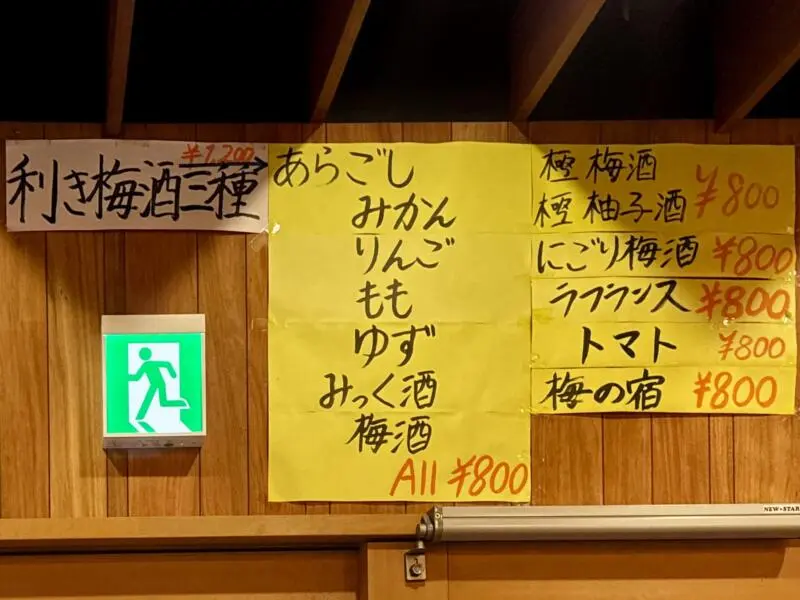 ¥1,200
利き梅酒三種
あらごし
みかん
りんご
もも
ゆず
みっく酒
梅酒
All ¥800
極 梅酒
極 柚子酒 ¥800
にごり梅酒 ¥800
ラフランス ¥800
トマト ¥800
梅の宿 ¥800
NEW-STAR